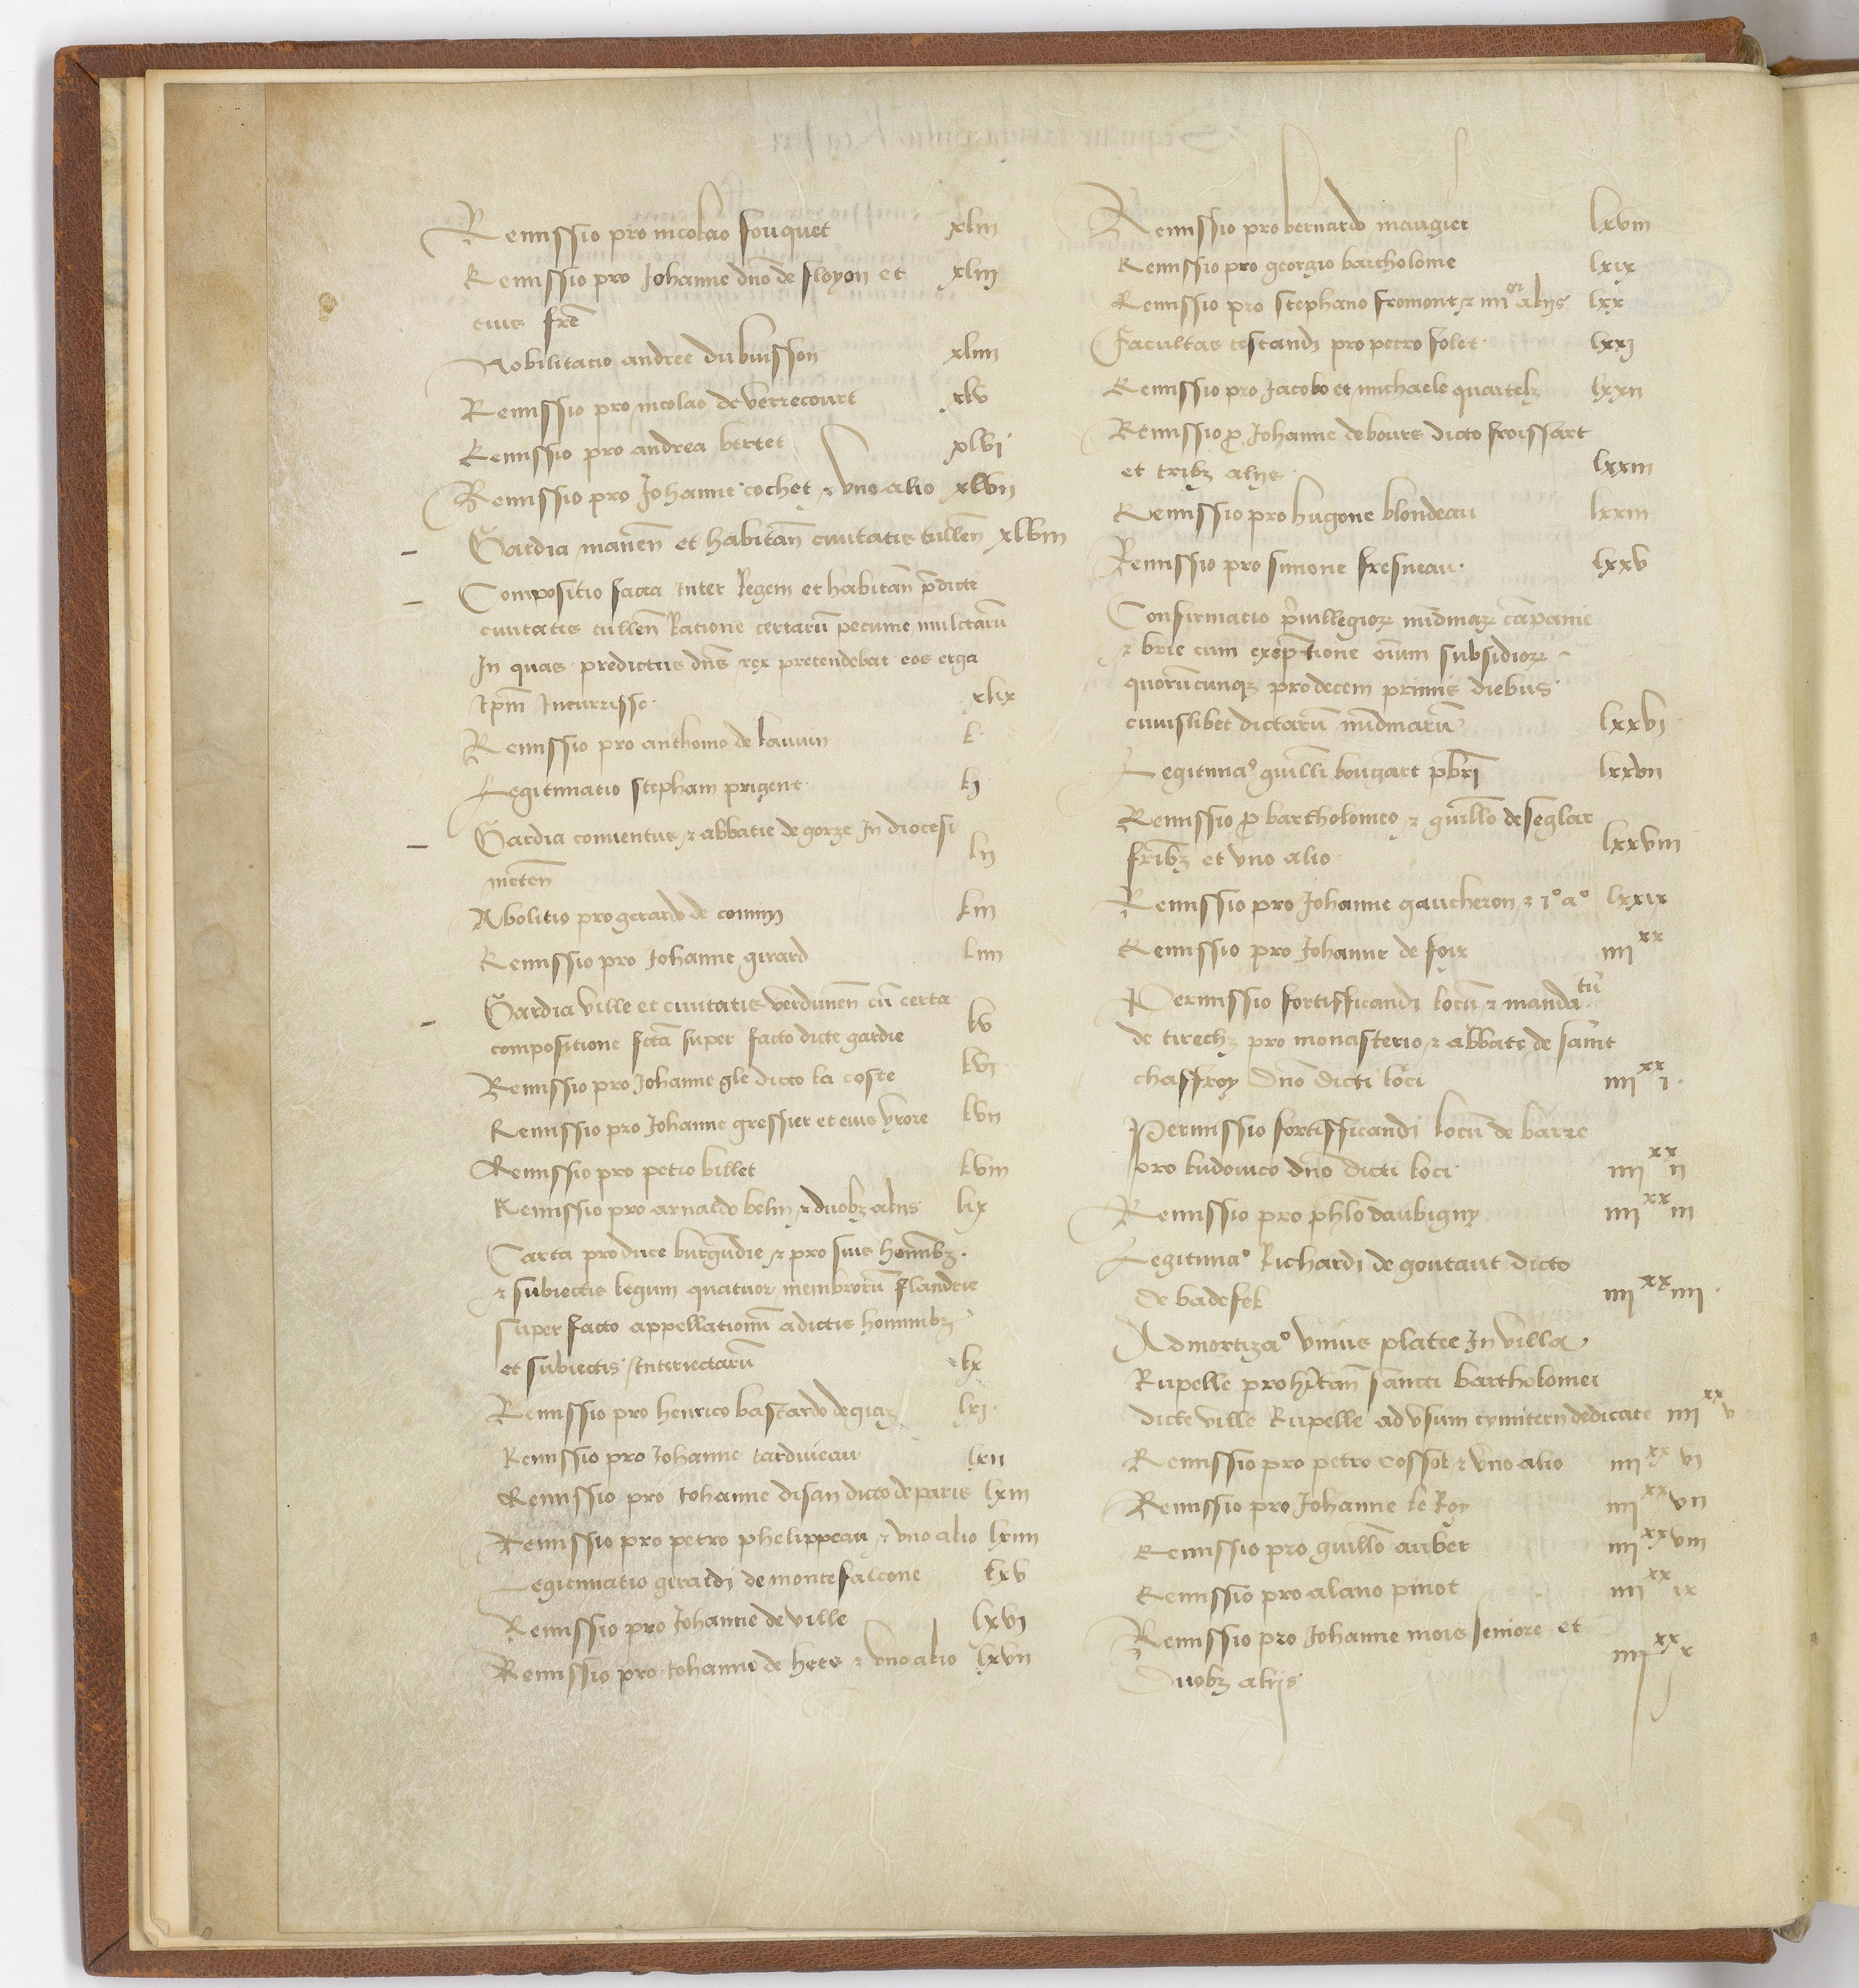 Remissio pro nicolao fouquet xlii
Remissio pro Johanne dno de floyon et xliij
eius fre
Nobilitacio andree du buisson xliiii
Remissio pro nicolao de verrecourt xlv
Remissio pro andrea bertet xlvi
Remissio pro Johanne cochet & uno alio xlvii
Gardia manen et habitan civitatis tullen xlviii
Compositio facta Inter Regem et habitan predicte
civitatis tullen Ratione certarū pecunie mulctarū
In quas predictus dns rex pretendebat eos erga
Ipm Incurrisse xlix
Remissio pro anthonio de lauvin l
Legitimatio stephani prigent lj
Gardia conventus & abbatie de gorze In diocesi
meten lii
Abolitio pro gerardo de conuny liii
Remissio pro Johanne girard liiii
Gardia ville et civitatis verdunen cū certa
compositione fcta super facto dicte gardie lv
Remissio pro Johanne gle dicto la coste lvi
Remissio pro Johanne gressier et eius uxore lvii
Remissio pro petro billet lviii
Remissio pro arnaldo belin & duobz aliis lix
Carta pro duce burgūdie & pro suis hominibz
& subiectis legum quatuor membrorū flandrie
super facto appellationum a dictis hominibz
et subiectis Interiectarū lx
Remissio pro henrico bastardo de giaz lxi
Remissio pro Johanne tardivieau lxii
Remissio pro Johanne disan dicto de paris lxiii
Remissio pro petro phelippeau & uno alio lxiiii
Legitimatio giraldi de montefalcone lxv
Remissio pro Johanne de ville lxvi
Remissio pro Johanne de hees & uno alio lxvii
Remissio pro bernardo maugier lxviii
Remissio pro georgio bartholome lxix
Remissio pro stephano fromont & iiii or aliis lxx
Facultas testandi pro petro folet lxxj
Remissio pro Jacobo et michaele quartelz lxxii
Remissio p Johanne de bours dicto froissart
et tribz aliis lxxiii
Remissio pro hugone blondeau lxxiiii
Remissio pro simone fresneau lxxv
Confirmacio privillegior nūdinar cāpanie
& brie cum exeptione oīum subsidior
quorūcunqz pro decem primis diebus
cuiuslibet dictarū nūdinarū lxxvi
Legitima° guillī bougart pbri lxxvii
Remissio p bartholomeo & guillō de seglar
fribz et uno alio lxxviii
Remissio pro Johanne gaucheron & i° a° lxxix
Remissio pro Johanne de foix iiii xx
Permissio fortifficandi locū & manda tū
de tirechz pro monasterio & abbate de saint
chaffroy dno dicti loci iiii xx i
Permissio fortifficandi locū de barre
pro ludovico dno dicti loci iiii xx ii
Remissio pro phlō daubigny iiii xx iii
Legitima° Richardi de goutaut dicto
de badefek iiii xx iiii
Admortiza° unius platee In villa
Rupelle pro hitan sancti bartholomei
dicte ville Rupelle ad usum cymiterii dedicate iiii xx v
Remissio pro petro cossot & uno alio iiii xx vi
Remissio pro Johanne le Roy iiii xx vii
Remissio pro guillō aubet iiii xx viii
Remissio pro alano pinot iiii xx ix
Remissio pro Johanne mois seniore et
duobz aliis iiii xx x